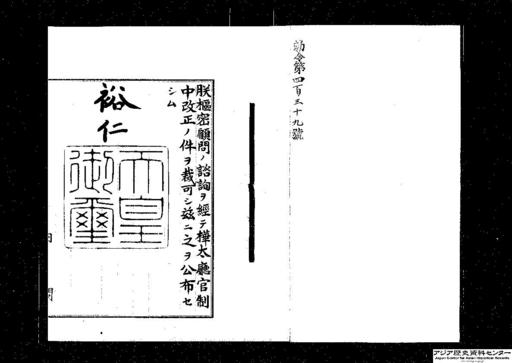 勅令第四百三十九號
朕樞密顧問ノ諮詢ヲ經テ樺太廳官制
中改正ノ件ヲ裁可シ茲ニ之ヲ公布セ
シム
裕仁
天皇
御璽
アジア歴史資料センター
Japan Center for Asian Historical Records